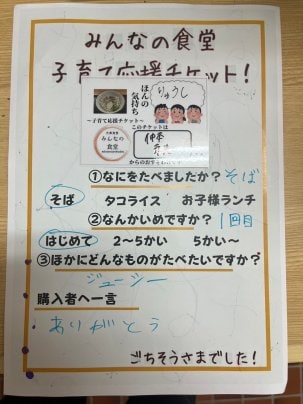 みんなの食堂
子育て応援チケット！
ほんの
気持ち
りゅうし
～子育て応援チケット～
このチケットは
みんなの
食堂
からのおすそわけです
①なにをたべましたか？そば
そば タコライス お子様ランチ
②なんかいめですか？ 1回目
はじめて 2～5かい 5かい～
③ほかにどんなものがたべたいですか？
ジューシー
購入者へ一言
ありがとう
ごちそうさまでした！